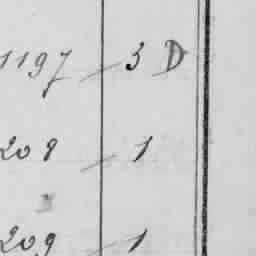 1197 3 D
208 1
209 1